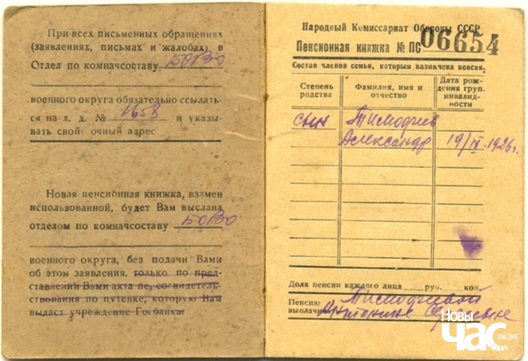 При всех письменных обращениях
(заявлениях, письмах и жалобах) в
Отдел по комначсоставу БОВО
военного округа обязательно ссылать-
ся на л. д. № 1658 и указы-
вать свой точный адрес
Новая пенсионная книжка, взамен
использованной, будет Вам выслана
отделом по комначсоставу БОВО
военного округа, без подачи Вами
об этом заявления, только по пред-
ставлении Вами акта по, освидетель-
ствования по путевке, которую Вам
выдаст учреждение Госбанка.
Народный Комиссариат Обороны СССР
Пенсионная книжка № ПС 06654
Состав членов семьи, которым назначена пенсия.
Степень родства
Фамилия, имя и отчество
Дата рож-
дения груп.
инвалид-
ности
сын Тимофеев
Александр 19/IX-1926 г.
Доля пенсии каждого лица руб. коп.
Пенсию Тимофеевой
выплачив
Новы Час ONLINE